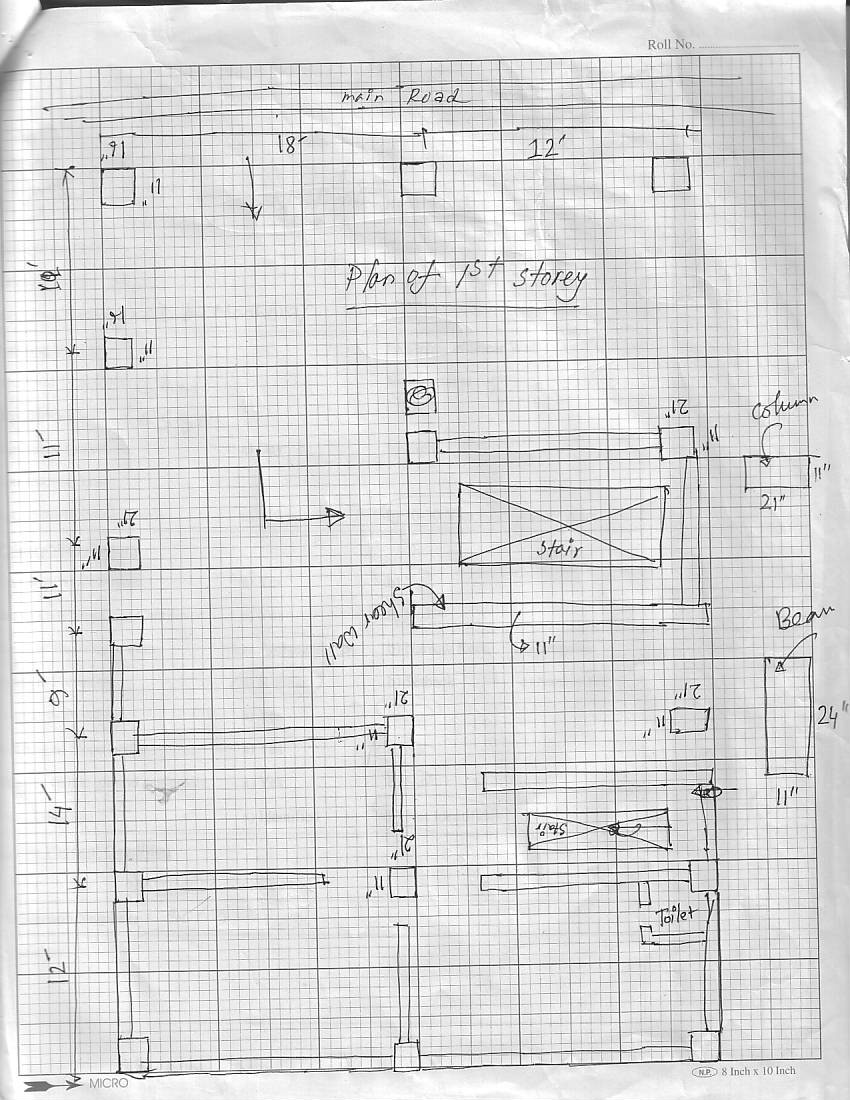 Roll No.
main Road
18'
12'
11"
Plan of 1st storey
11"
21"
11"
Column
11"
21"
11'
Stair
21"
11"
11'
Shear Wall
11"
Beam
24"
11"
9'
21"
11"
21"
11"
14'
Stair
21"
11"
Toilet
12'
MICRO
N.P. 8 Inch x 10 Inch